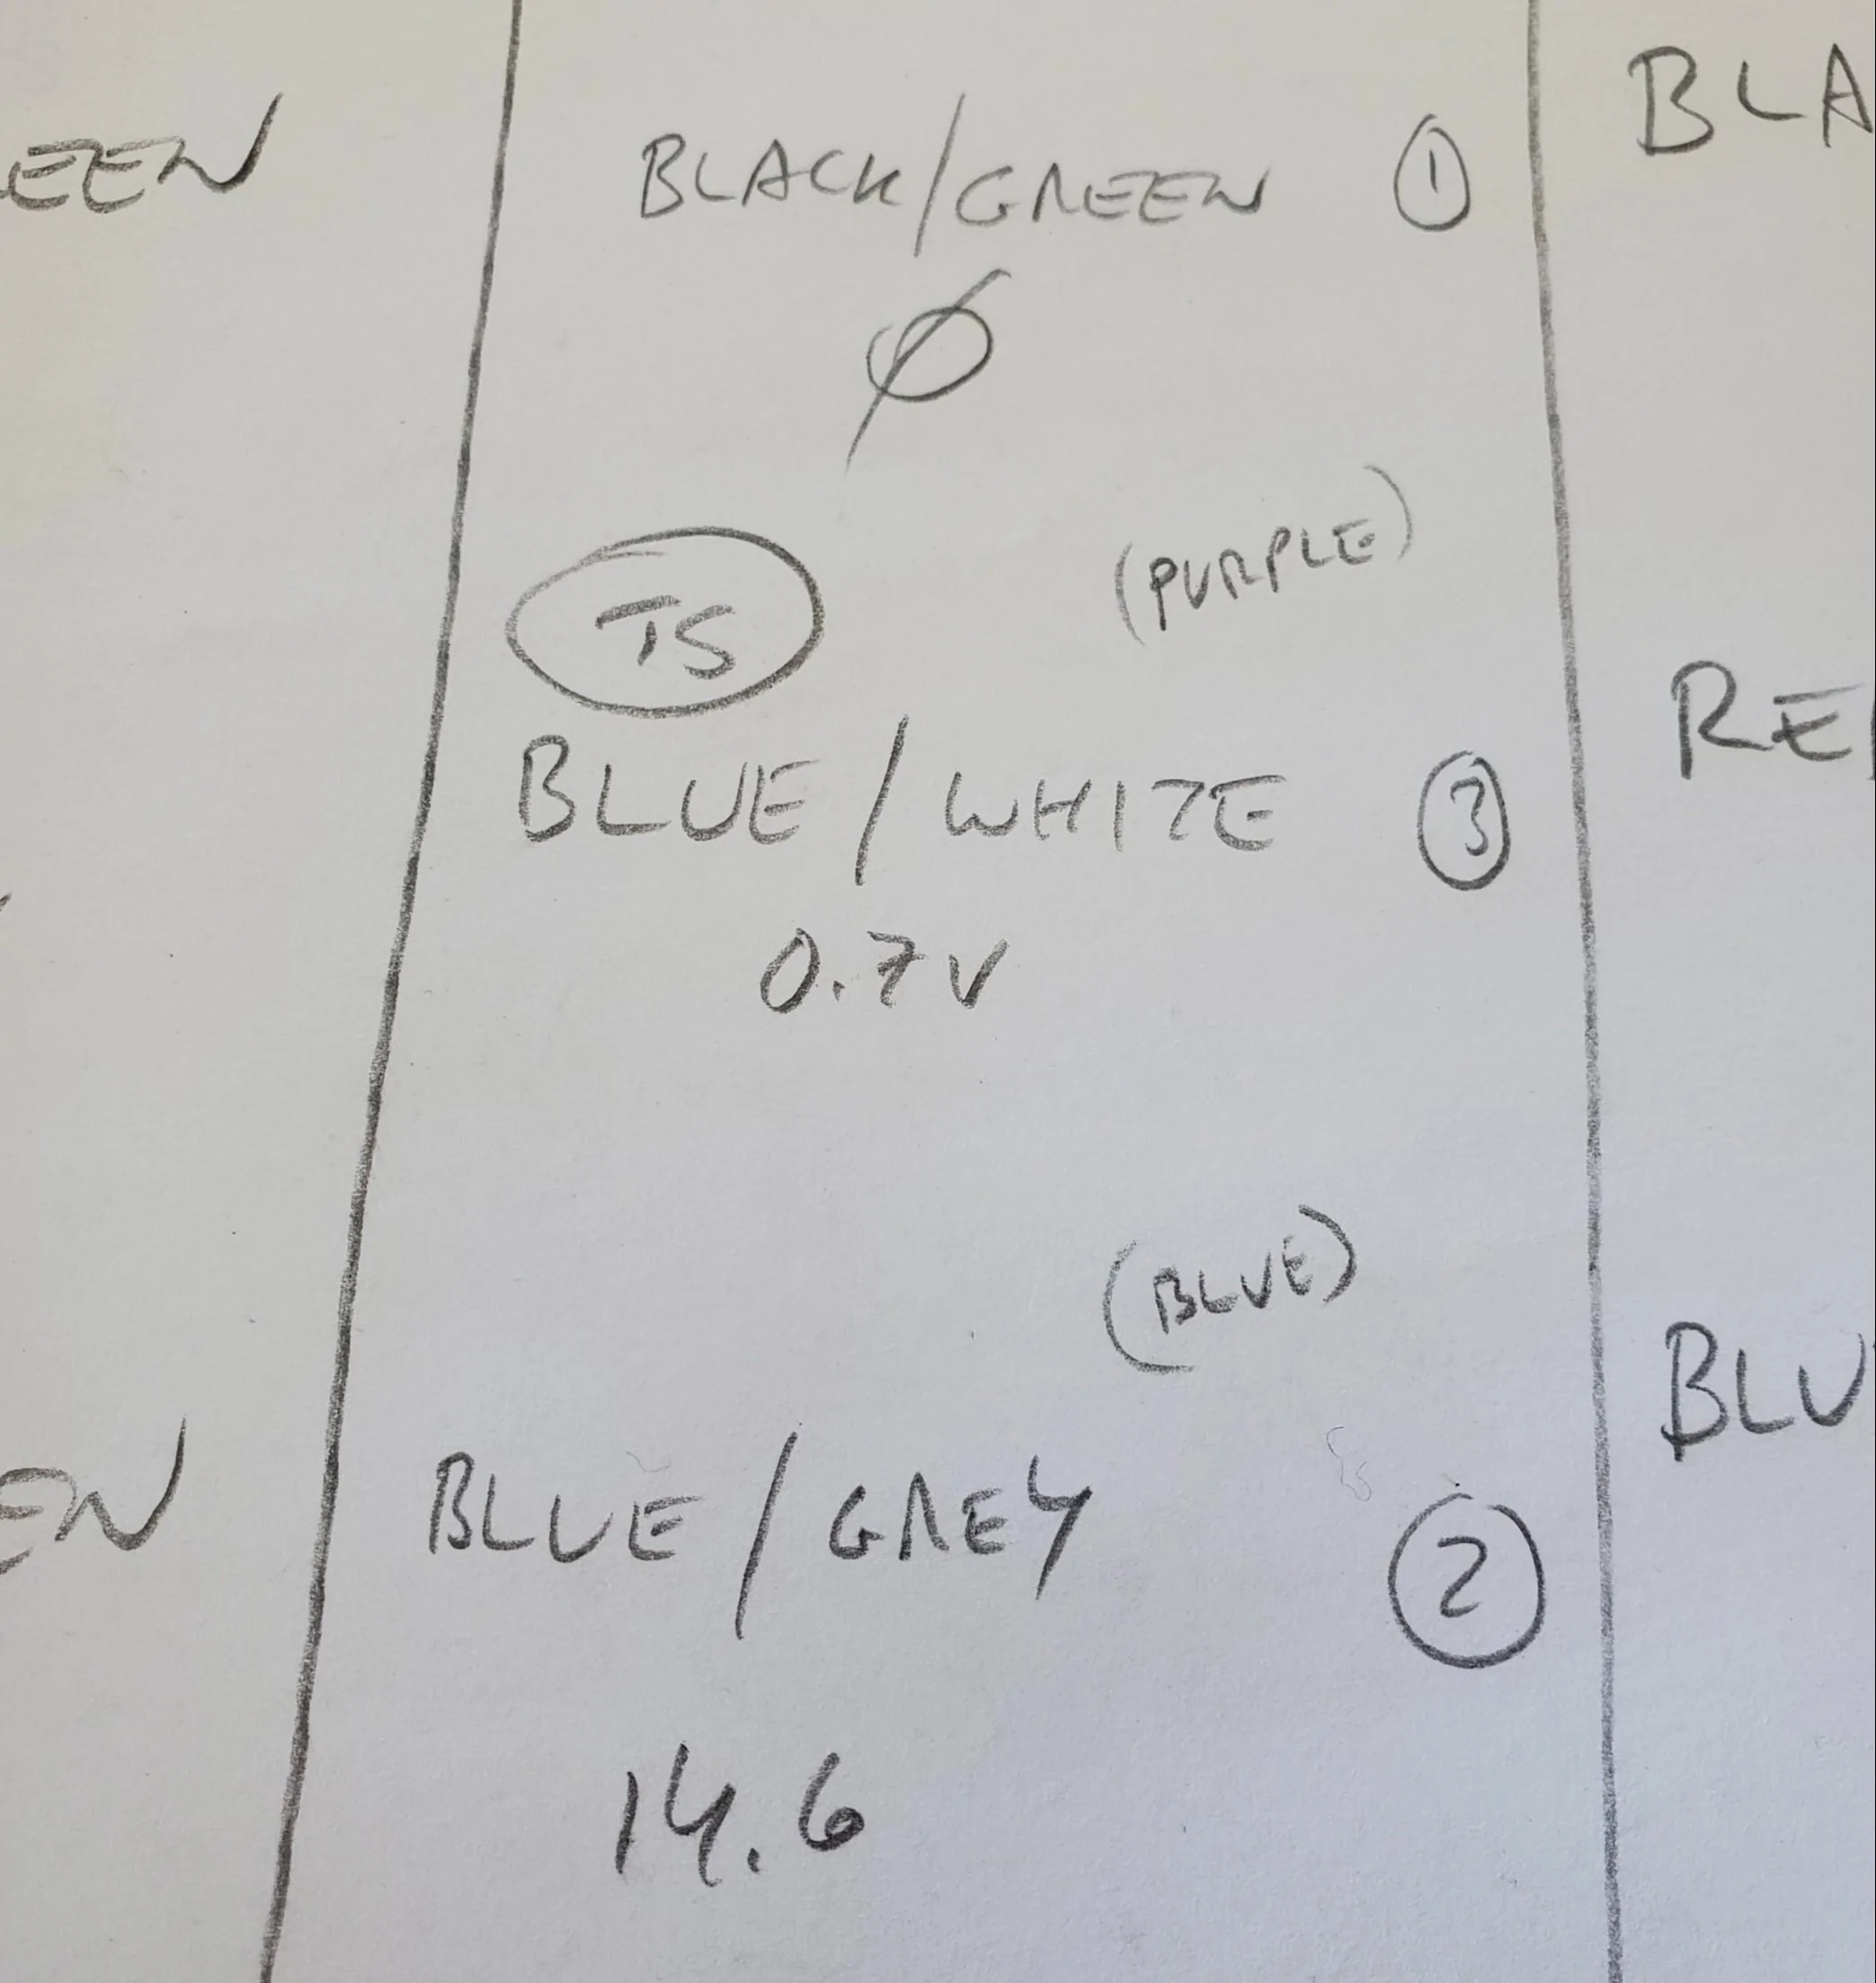 EEN
BLACK/GREEN ①
Ø
(PURPLE)
TS
BLUE / WHITE ③
0.7V
(BLUE)
EN
BLUE / GREY ②
14.6
BLA
RE
BLU